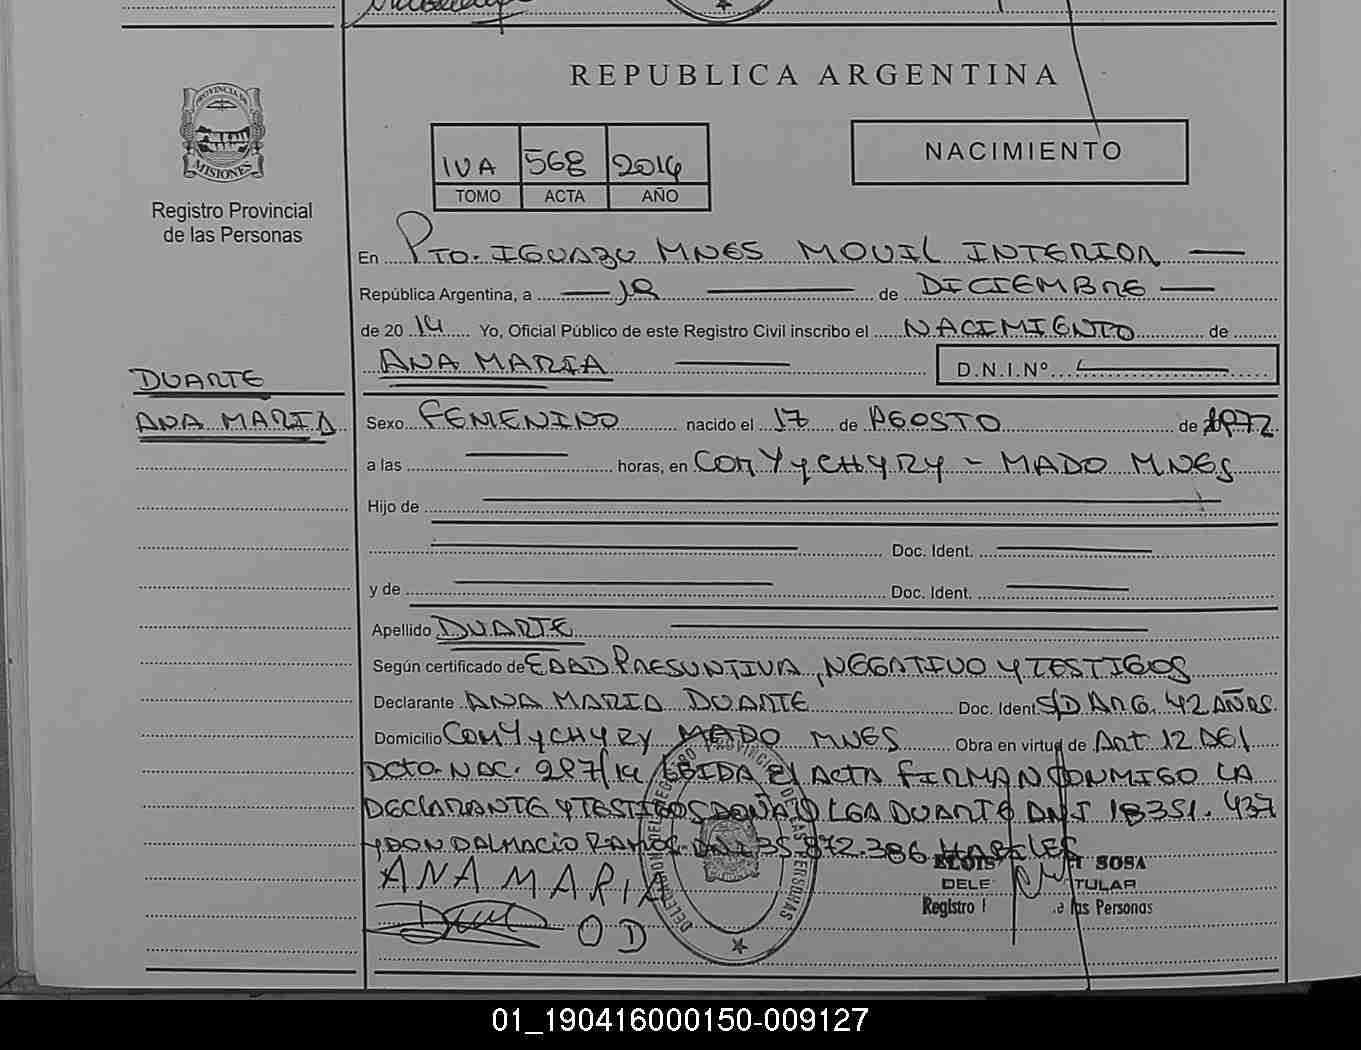 REPUBLICA ARGENTINA
PROVINCIA DE
MISIONES
Registro Provincial
de las Personas
IVA 568 2014
TOMO ACTA AÑO
NACIMIENTO
En Pto. IGUAZU MNES MOVIL INTERIOR
República Argentina, a de DICIEMBRE
de 2014 Yo, Oficial Público de este Registro Civil inscribo el NACIMIENTO de
ANA MARIA D.N.I.Nº
DUARTE
ANA MARIA
Sexo FEMENINO nacido el 17 de AGOSTO de 1972
a las horas, en COM YyCHYRY - MADO MNES
Hijo de
Doc. Ident.
y de Doc. Ident.
Apellido DUARTE
Según certificado de EDAD PRESUNTIVA, NEGATIVO Y TESTIGOS
Declarante ANA MARIA DUARTE Doc. Ident S/D ARG. 42 AÑOS
Domicilio COM YyCHYRY MADO MNES Obra en virtud de Art 12 DEl
DCTO. NAC. 297/14 LEIDA El ACTA FIRMAN CONMIGO LA
DECLARANTE Y TESTIGOS DOÑA OLGA DUARTE DNI 18351.437
Y DON DALMACIO RAMOS DNI 35.872.386 HABILES
ANA MARIA
OD
SOSA
DELE TULAR
Registro las Personas
01_190416000150-009127